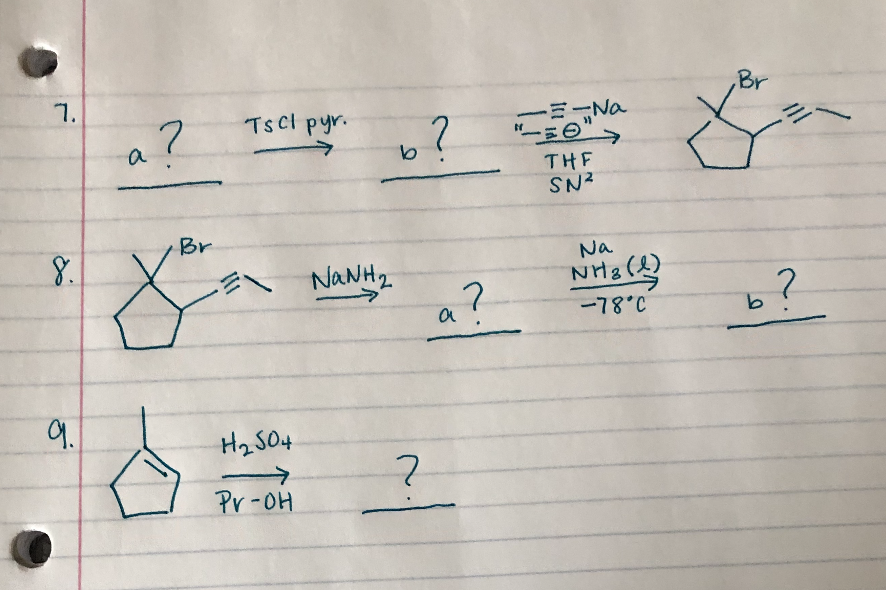 7. a ? TsCl pyr. b ? —≡—Na Br
"—≡⊖"
THF
SN²
8. Br NaNH₂ a ? Na b ?
NH₃(l)
-78°C
9. H₂SO₄ ?
Pr-OH